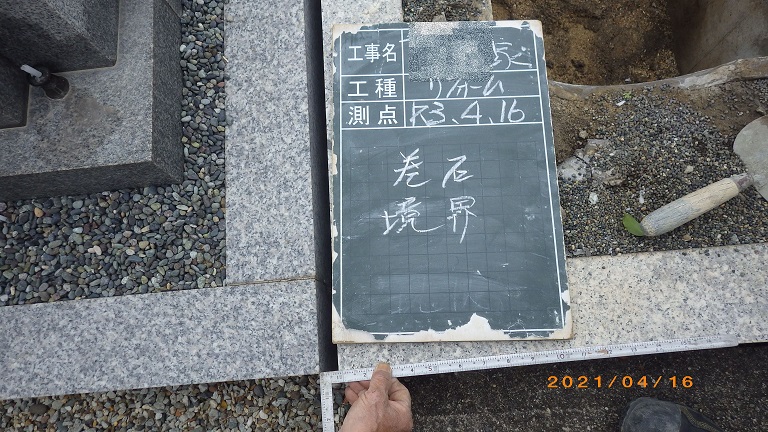 工事名 家
工種 リフォーム
測点 R3.4.16
巻石
境界
2021/04/16